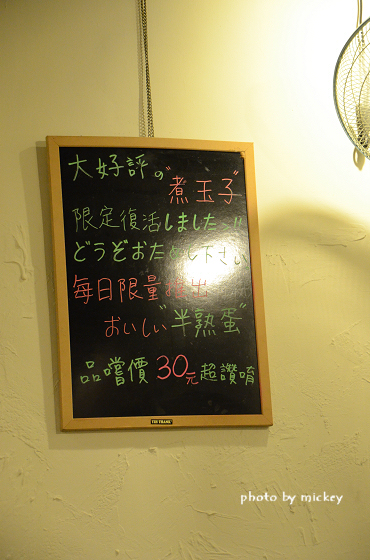 大好評の
"煮玉子"
限定復活しました
どうぞおためし下さい
每日限量推出
おいしい"半熟蛋"
品嚐價30元超讚唷
photo by mickey